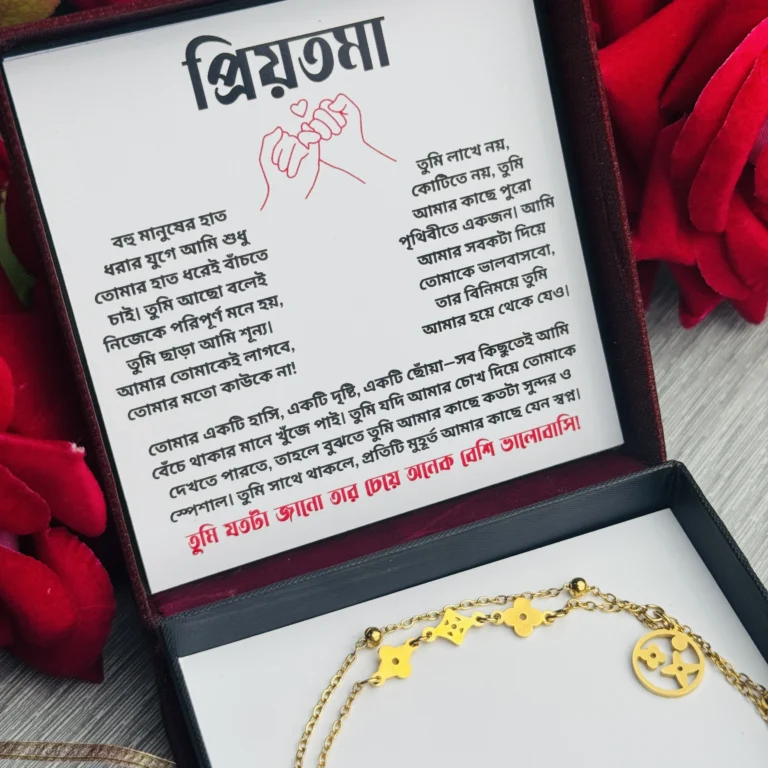 প্রিয়তমা
বহু মানুষের হাত
ধরার যুগে আমি শুধু
তোমার হাত ধরেই বাঁচতে
চাই। তুমি আছো বলেই
নিজেকে পরিপূর্ণ মনে হয়,
তুমি ছাড়া আমি শূন্য।
আমার তোমাকেই লাগবে,
তোমার মতো কাউকে না!
তুমি লাখে নয়,
কোটিতে নয়, তুমি
আমার কাছে পুরো
পৃথিবীতে একজন। আমি
আমার সবকটা দিয়ে
তোমাকে ভালবাসবো,
তার বিনিময়ে তুমি
আমার হয়ে থেকে যেও।
তোমার একটি হাসি, একটি দৃষ্টি, একটি ছোঁয়া—সব কিছুতেই আমি
বেঁচে থাকার মানে খুঁজে পাই। তুমি যদি আমার চোখ দিয়ে তোমাকে
দেখতে পারতে, তাহলে বুঝতে তুমি আমার কাছে কতটা সুন্দর ও
স্পেশাল। তুমি সাথে থাকলে, প্রতিটি মুহূর্ত আমার কাছে যেন স্বপ্ন।
তুমি যতটা জানো তার চেয়ে অনেক বেশি ভালোবাসি!